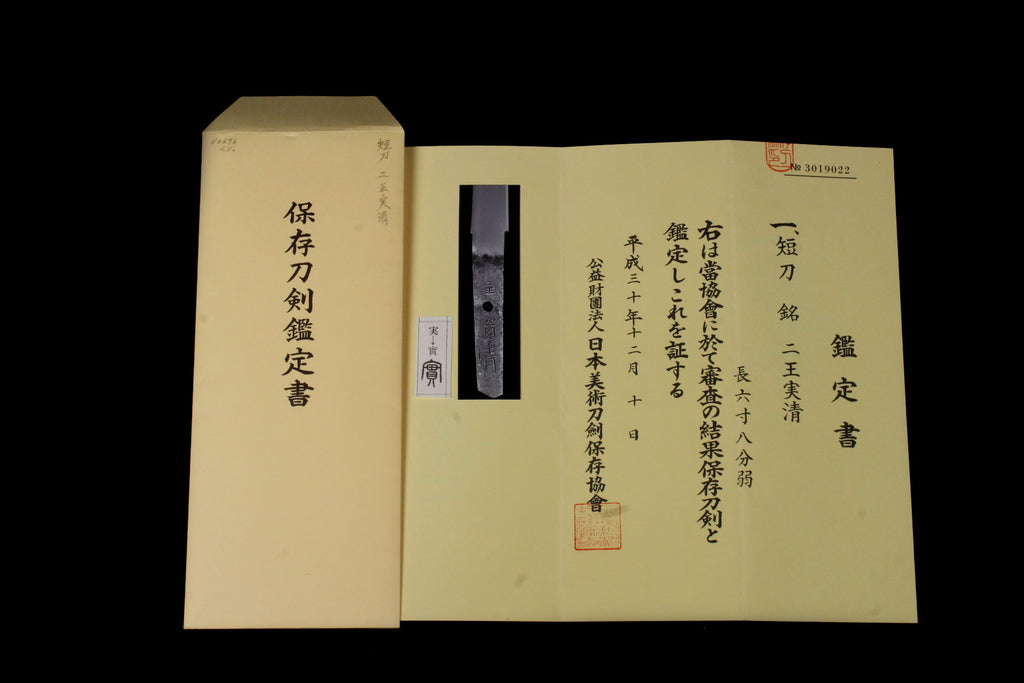 保存刀剣鑑定書
短刀 二王実清
№ 3019022
鑑定書
一、短刀 銘 二王実清
長六寸八分弱
右は當協會に於て審査の結果保存刀剣と
鑑定しこれを証する
平成三十年十二月 十 日
公益財團法人日本美術刀劍保存協會
実→實
實